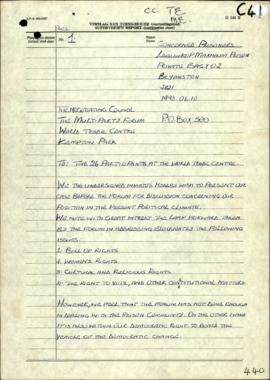 CC TE
C41
No. 1
CONCERNED PRISONERS
LEEUWKOP MAXIMUM PRISON
PRIVATE BAG X02
BRYANSTON
2021
1993.06.10
THE NEGOTIATING COUNCIL
THE MULTI PARTY FORUM
P.O BOX 500
WORLD TRADE CENTRE
KEMPTON PARK
TO: THE 26 PARTICIPANTS AT THE WORLD TRADE CENTRE.
WE THE UNDERSIGNED INMATES HEREBY WISH TO PRESENT OUR
CASE BEFORE THE FORUM FOR DISCUSSION CONCERNING OUR
POSITION IN THE PRESENT POLITICAL CLIMATE.
WE NOTE WITH GREAT INTEREST THE LEAP FORWARD TAKEN
BY THE FORUM IN ADDRESSING THE FOLLOWING
ISSUES:
1. BILL OF RIGHTS
2. WOMEN'S RIGHTS
3. CULTURAL AND RELIGIOUS RIGHTS
4. THE RIGHT TO VOTE, AND OTHER CONSTITUTIONAL MATTERS.
HOWEVER, WE FEEL THAT THE FORUM HAS NOT DONE ENOUGH
IN DEALING WITH THE PRISON COMMUNITY. ON THE OTHER HAND
IT IS ALSO WITHIN OUR DEMOCRATIC RIGHT TO
OF THE DEMOCRATIC CHANGE.
440